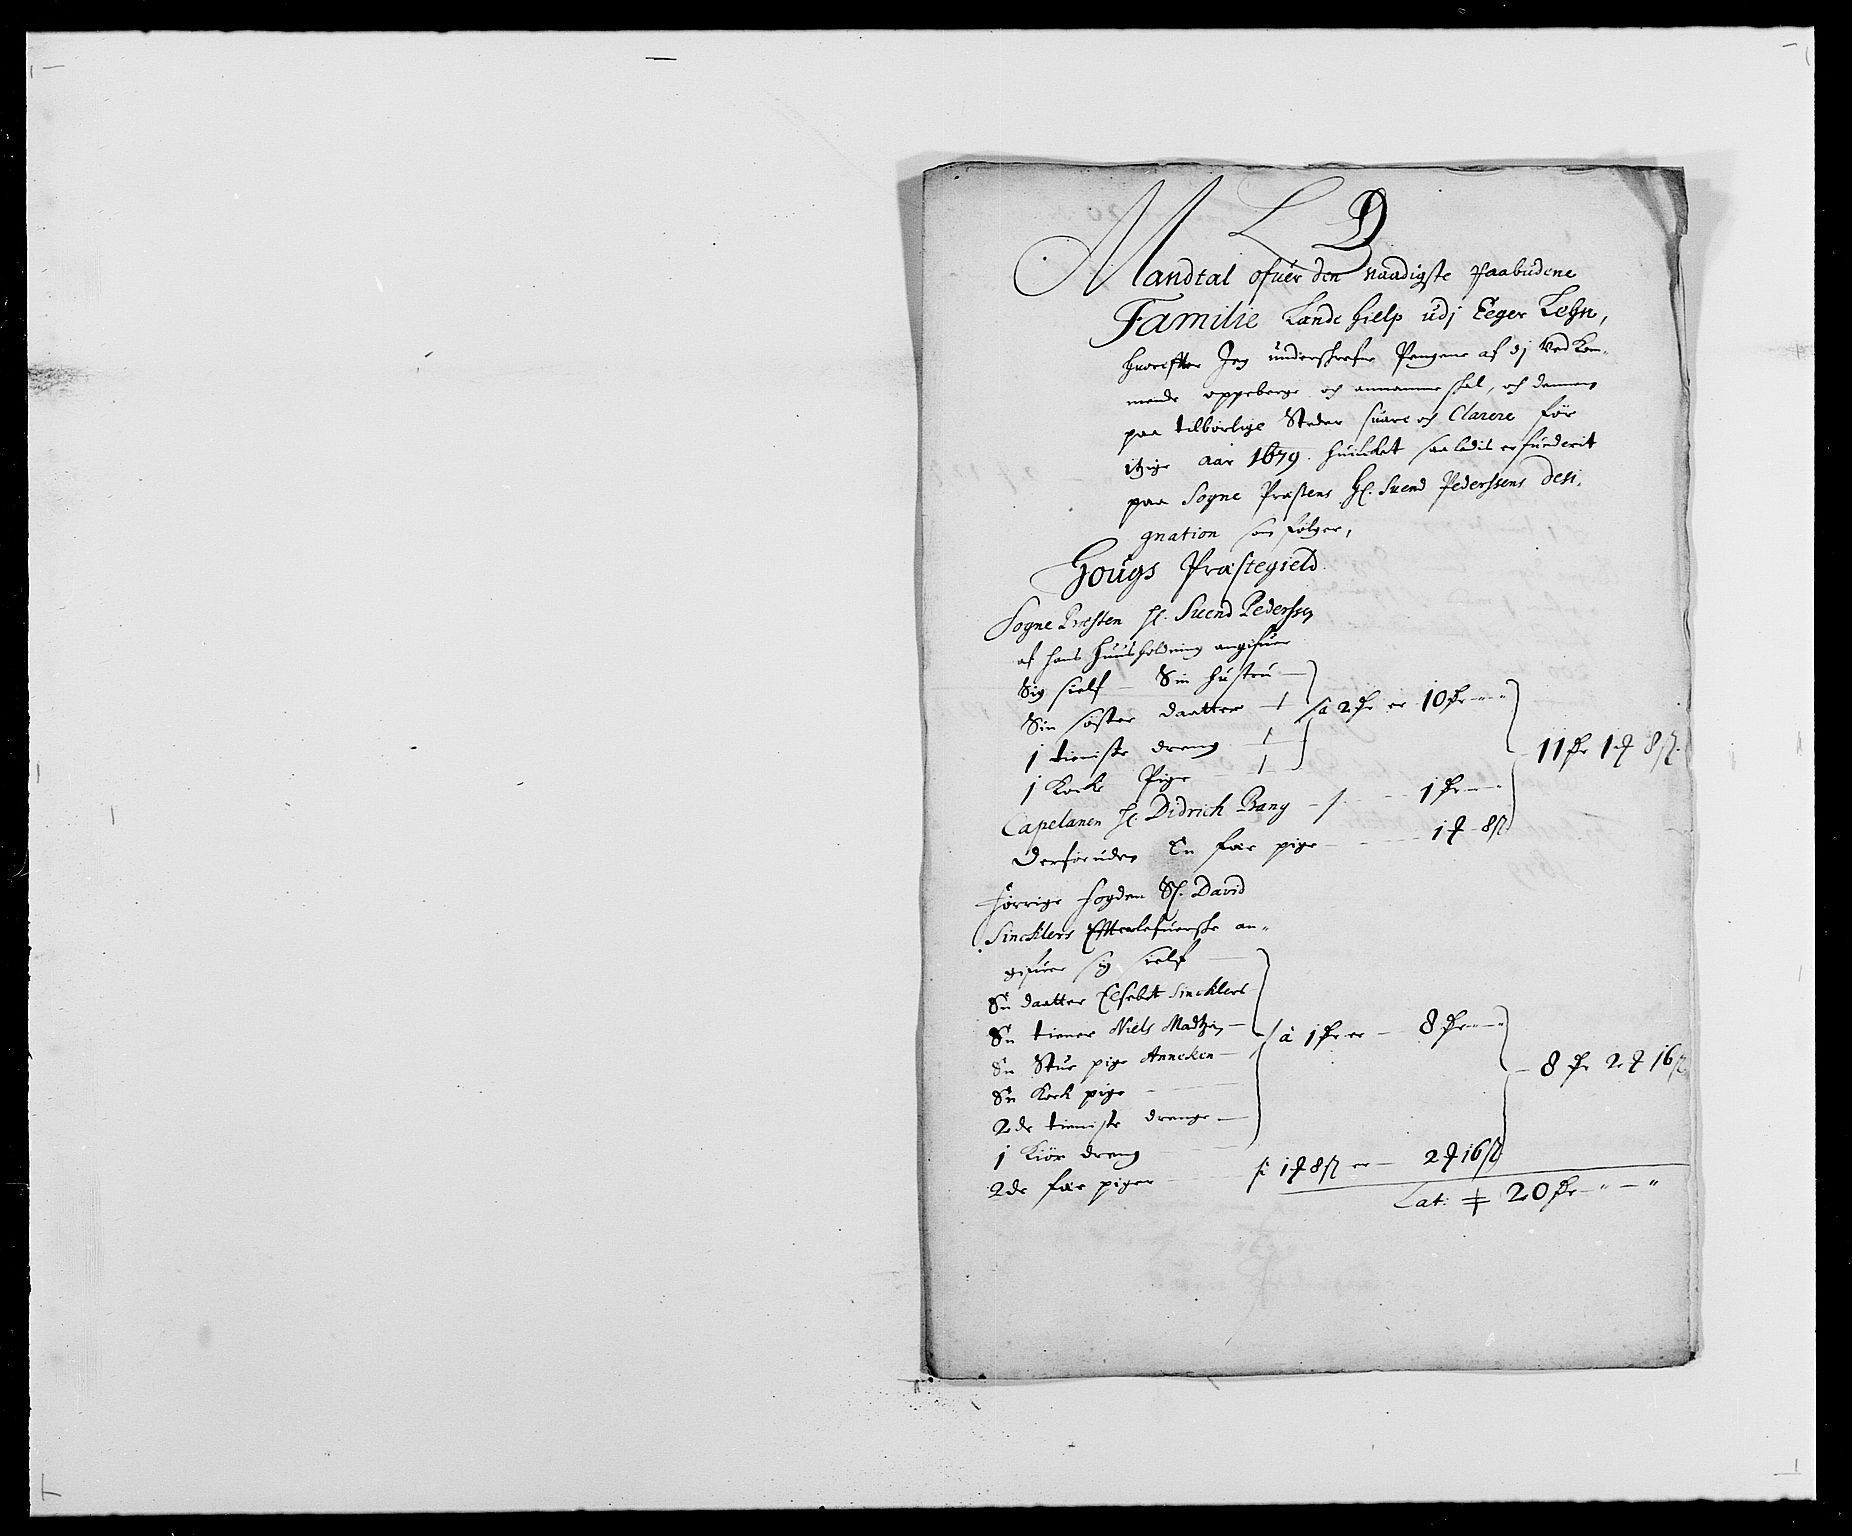 L D
Mandtal ofuer den naadigste paabudene
Familie Lande hielp udj Eeger Lehn,
hvorefter Jeg underskrefne Pengene af dj Ved kom-
mende oppeberge och annamme skal, och dennem
paa tilbørlige Steder suare och Clarere for
itzige aar 1679. huilket saaledis er funderit
paa Sogne Præstens Hr. Suend Pederssens desi-
gnation som følger,
Hougs Præstegield
Sogne Præsten Hr. Suend Pederssen
af hans huusholdning angifuer
Sig sielf - Sin hustru
Sin søster daatter - 1 / à 2 Rdr er 10 Rdr - " - "
1 tieniste dreng - 1
1 Kocke Pige - 1 11 Rdr 1 ort 8 ß
Capelanen Hr. Didrich Bang - / - 1 Rdr
Derforuden En fæe pige - 1 ort 8 ß
forrige fogden Sl. David
Sincklers Effterlefuerske an-
gifuer sig sielf
En daatter Elsebet Sincklers
En tiener Niels Madtzen / à 1 Rdr er - 8 Rdr
En Stue pige Anneken 8 Rdr 2 ort 16 ß
En Kock pige
2de tieniste drenge
1 Kiøre dreng
2de fæe piger à 1 ort 8 ß er - 2 ort 16 ß
Lat: 20 Rdr - " - "